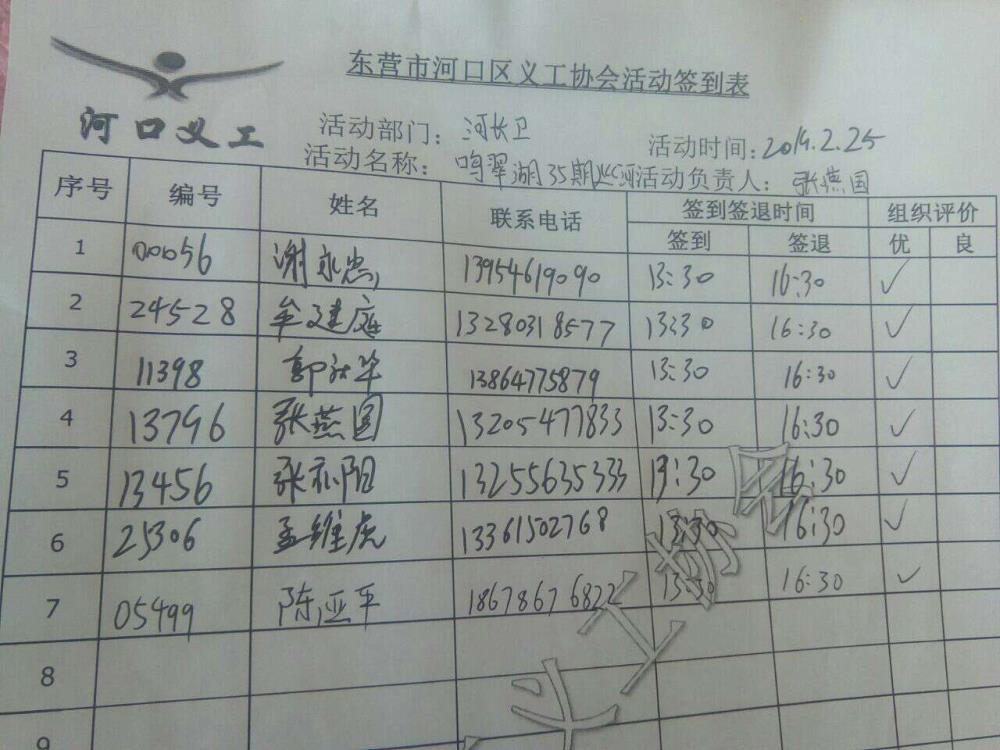 东营市河口区义工协会活动签到表
河口义工
活动部门：河长卫 活动时间：2019.2.25
活动名称：鸣翠湖35期巡河 活动负责人：张燕国
序号 编号 姓名 联系电话 签到签退时间 组织评价
签到 签退 优 良
1 00056 谢永忠 13954619090 13:30 16:30 ✓
2 24528 牟建庭 13280318577 13:30 16:30 ✓
3 11398 郭秋华 13864775879 13:30 16:30 ✓
4 13796 张燕国 13205477833 13:30 16:30 ✓
5 13456 张亦阳 13255635333 13:30 16:30 ✓
6 25306 孟维虎 13361502768 13:30 16:30 ✓
7 05499 陈亚平 18678676822 13:30 16:30 ✓
8
9